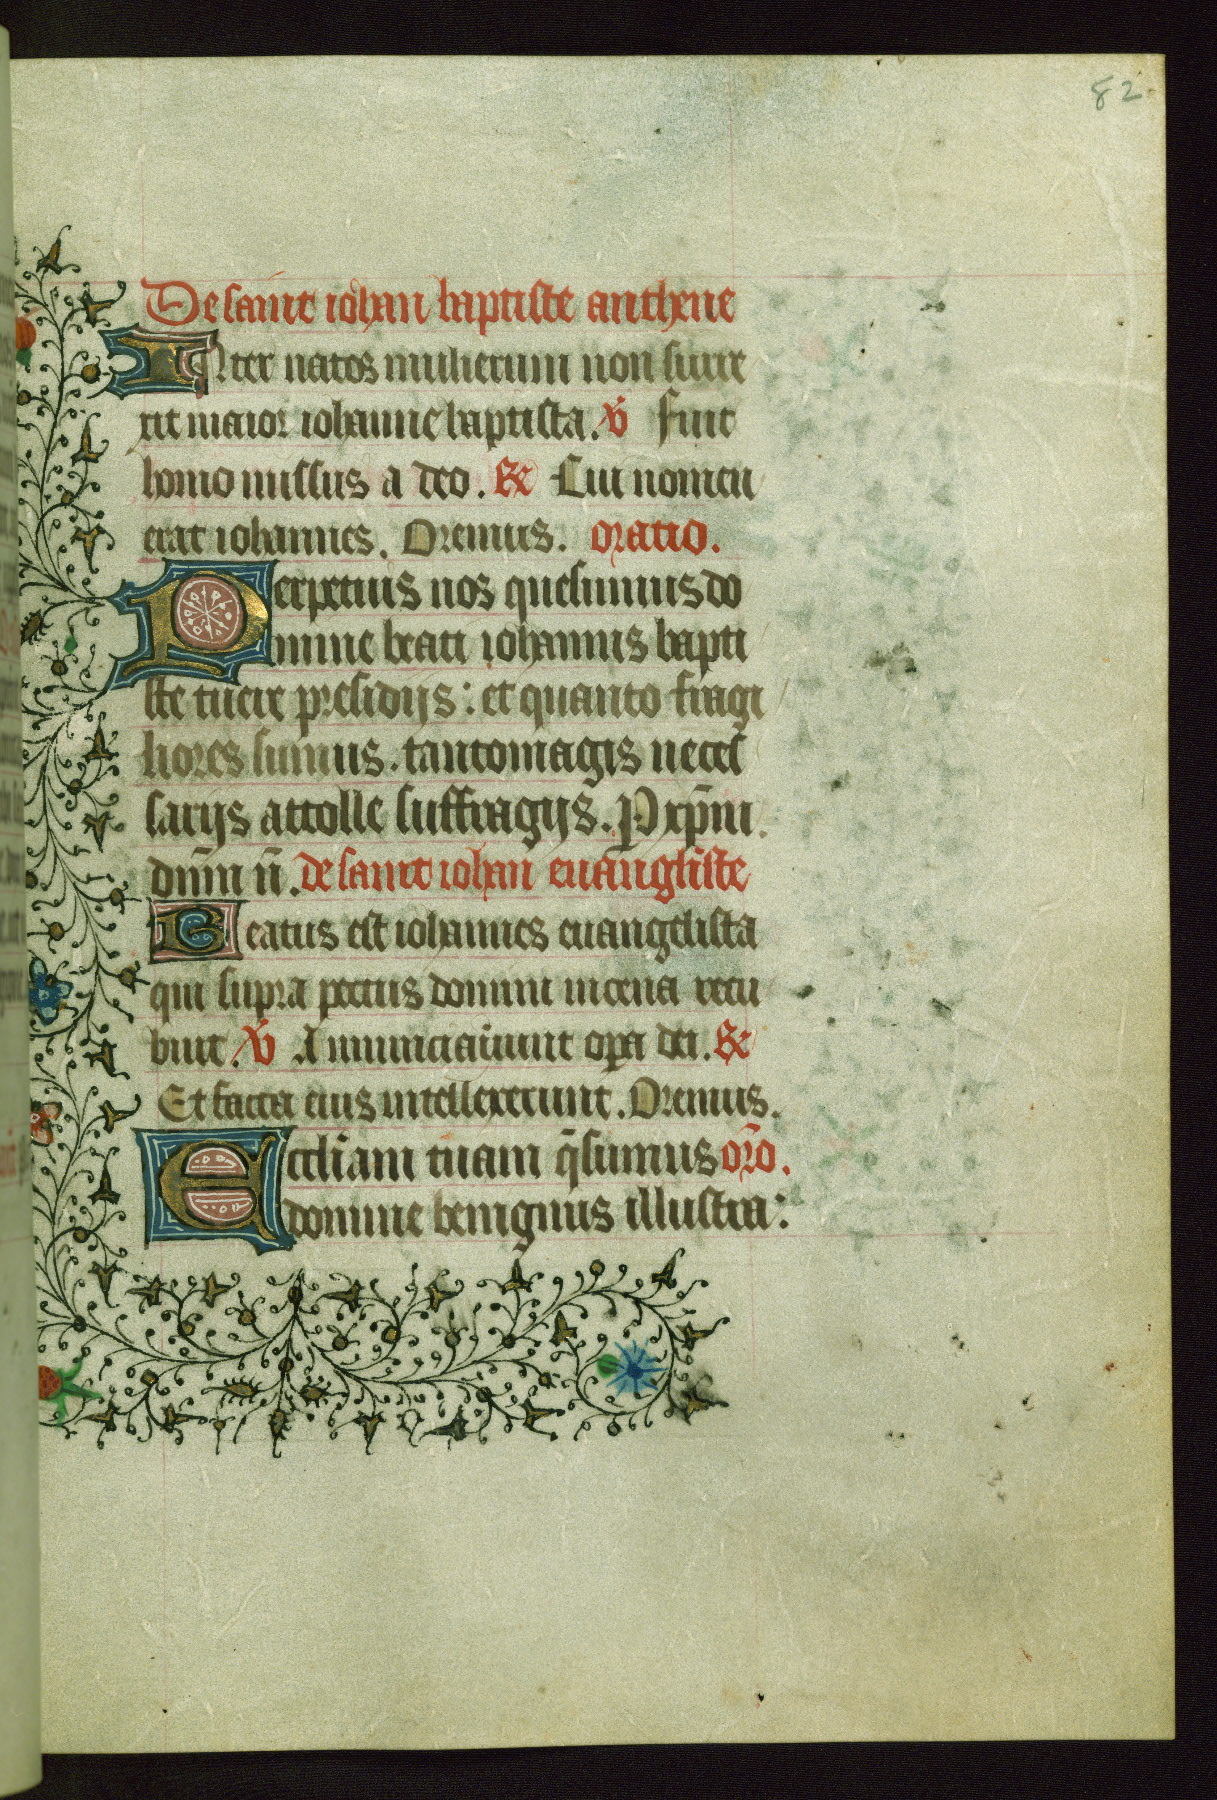 82
De saint iohan baptiste anthene
Inter natos mulierum non surre
xit maior iohanne baptista. V̄ Fuit
homo missus a deo. R̄ Cui nomen
erat iohannes. Oremus. oratio.
Perpetuis nos quesumus do
mine beati iohannis bapti
ste tuere presidijs: et quanto fragi
liores sumus. tantomagis neces
sarijs attolle suffragijs. P xp̄m
dn̄m n̄. de saint iohan euāngliste
Beatus est iohannes euangelista
qui supra pectus domini in cena recu
buit. V̄ Annunciauiunt opa dei. R̄
Et facta eius intellexerunt. Oremus.
Eccliam tuam q̄sumus oro̅.
domine benignus illustra: